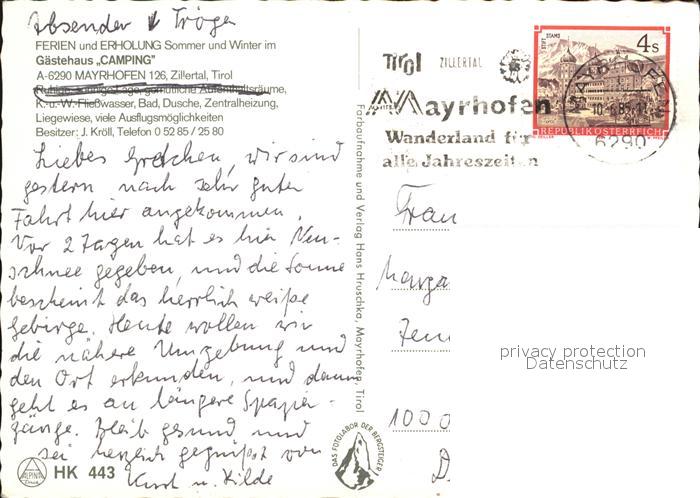 Absender Tröger
FERIEN und ERHOLUNG Sommer und Winter im
Gästehaus „CAMPING"
A-6290 MAYRHOFEN 126, Zillertal, Tirol
Ruhige, sonnige Lage, gemütliche Aufenthaltsräume,
K.- u. W.-Fließwasser, Bad, Dusche, Zentralheizung,
Liegewiese, viele Ausflugsmöglichkeiten
Besitzer: J. Kröll, Telefon 0 52 85 / 25 80
Liebes Gretchen, wir sind
gestern nach sehr guter
Fahrt hier angekommen.
Vor 2 Tagen hat es hier Neu-
schnee gegeben, und die Sonne
bescheint das herrlich weiße
Gebirge. Heute wollen wir
die nähere Umgebung und
den Ort erkunden, und dann
geht es an längere Spazier-
gänge. Bleib gesund und
sei herzlich gegrüßt von
Kurt u. Hilde
ALPINA
HK 443
Farbaufnahme und Verlag Hans Hruschka, Mayrhofen, Tirol
DAS FOTOLABOR DER BERGSTEIGER
Tirol ZILLERTAL
Mayrhofen
Wanderland für
alle Jahreszeiten
STIFT STAMS
4 S
REPUBLIK ÖSTERREICH
6290
Frau
Marga
1000
privacy protection
Datenschutz